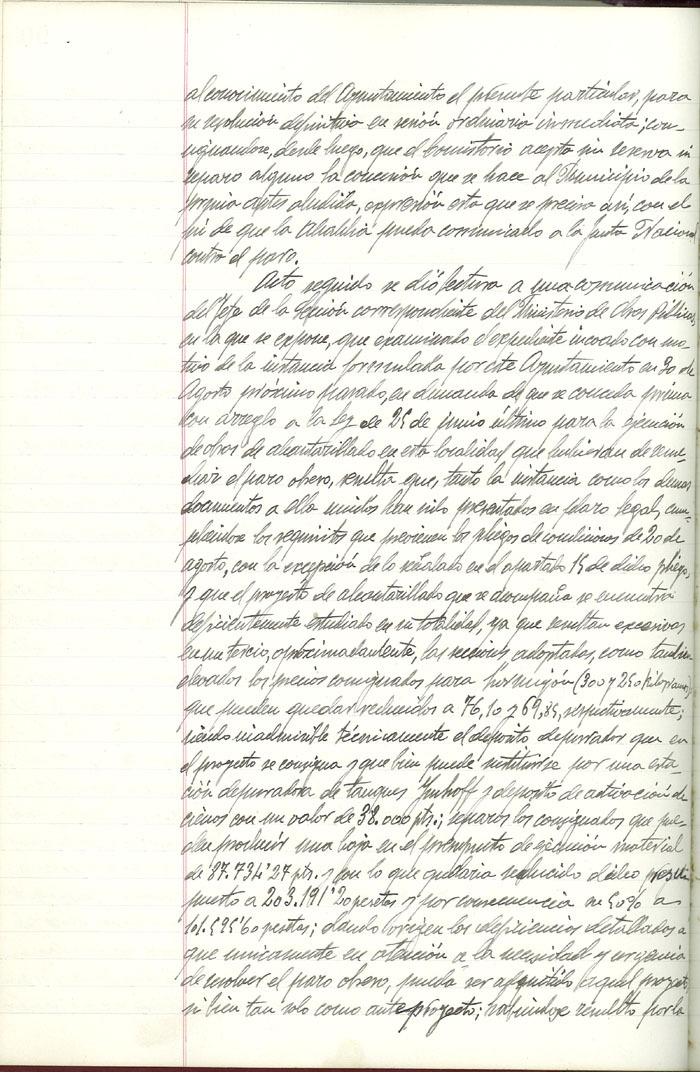 al conocimiento del Ayuntamiento el presente particular, para
su resolución definitiva en sesión ordinaria inmediata; con-
signandose, desde luego, que el Consistorio acepta sin reserva ni
reparo alguno la concesión que se hace al Municipio de la
prima antes aludida, expresión esta que se precisa así, con el
fin de que la Alcaldia pueda comunicarlo a la Junta Nacional
contra el paro.
Acto seguido se dió lectura a una comunicación
del Jefe de la Sección correspondiente del Ministerio de Obras Públicas,
en la que se expone, que examinado el expediente incoado con mo-
tivo de la instancia formulada por este Ayuntamiento en 30 de
Agosto próximo pasado, en demanda de que se conceda prima
con arreglo a la Ley de 25 de junio último para la ejecución
de obras de alcantarillado en esta localidad, que hubieran de reme-
diar el paro obrero, resulta que, tanto la instancia como los demas
documentos a ella unidos han sido presentados en plazo legal, cum-
pliendose los requisitos que previenen los pliegos de condiciones de 20 de
agosto, con la excepción de lo señalado en el apartado 15 de dicho pliego,
y que el proyecto de alcantarillado que se acompaña se encuentra
deficientemente estudiado en su totalidad, ya que resultan excesivas
en un tercio, aproximadamente, las secciones adoptadas, como tambien
elevados los precios consignados para hormigón (300 y 250 kilogramos)
que pueden quedar reducidos a 76,10 y 69,85, respectivamente;
siendo inadmisible técnicamente el depósito depurador que en
el proyecto se consigna y que bien puede sustituirse por una esta-
ción depuradora de tanques Imhoff y deposito de activación de
cienos con un valor de 38.000 pts.; reparos los consignados que pue-
den producir una baja en el presupuesto de ejecución material
de 37.734'27 pts. y con lo que quedaria reducido dicho presu
puesto a 203.191'20 pesetas y por consecuencia su 50% a
101.595'60 pesetas; dando origen las deficiencias detalladas a
que unicamente en atención a la necesidad y urgencia
de resolver el paro obrero, pueda ser admitido aquel proyecto
si bien tan solo como anteproyecto; habiendose resuelto por la